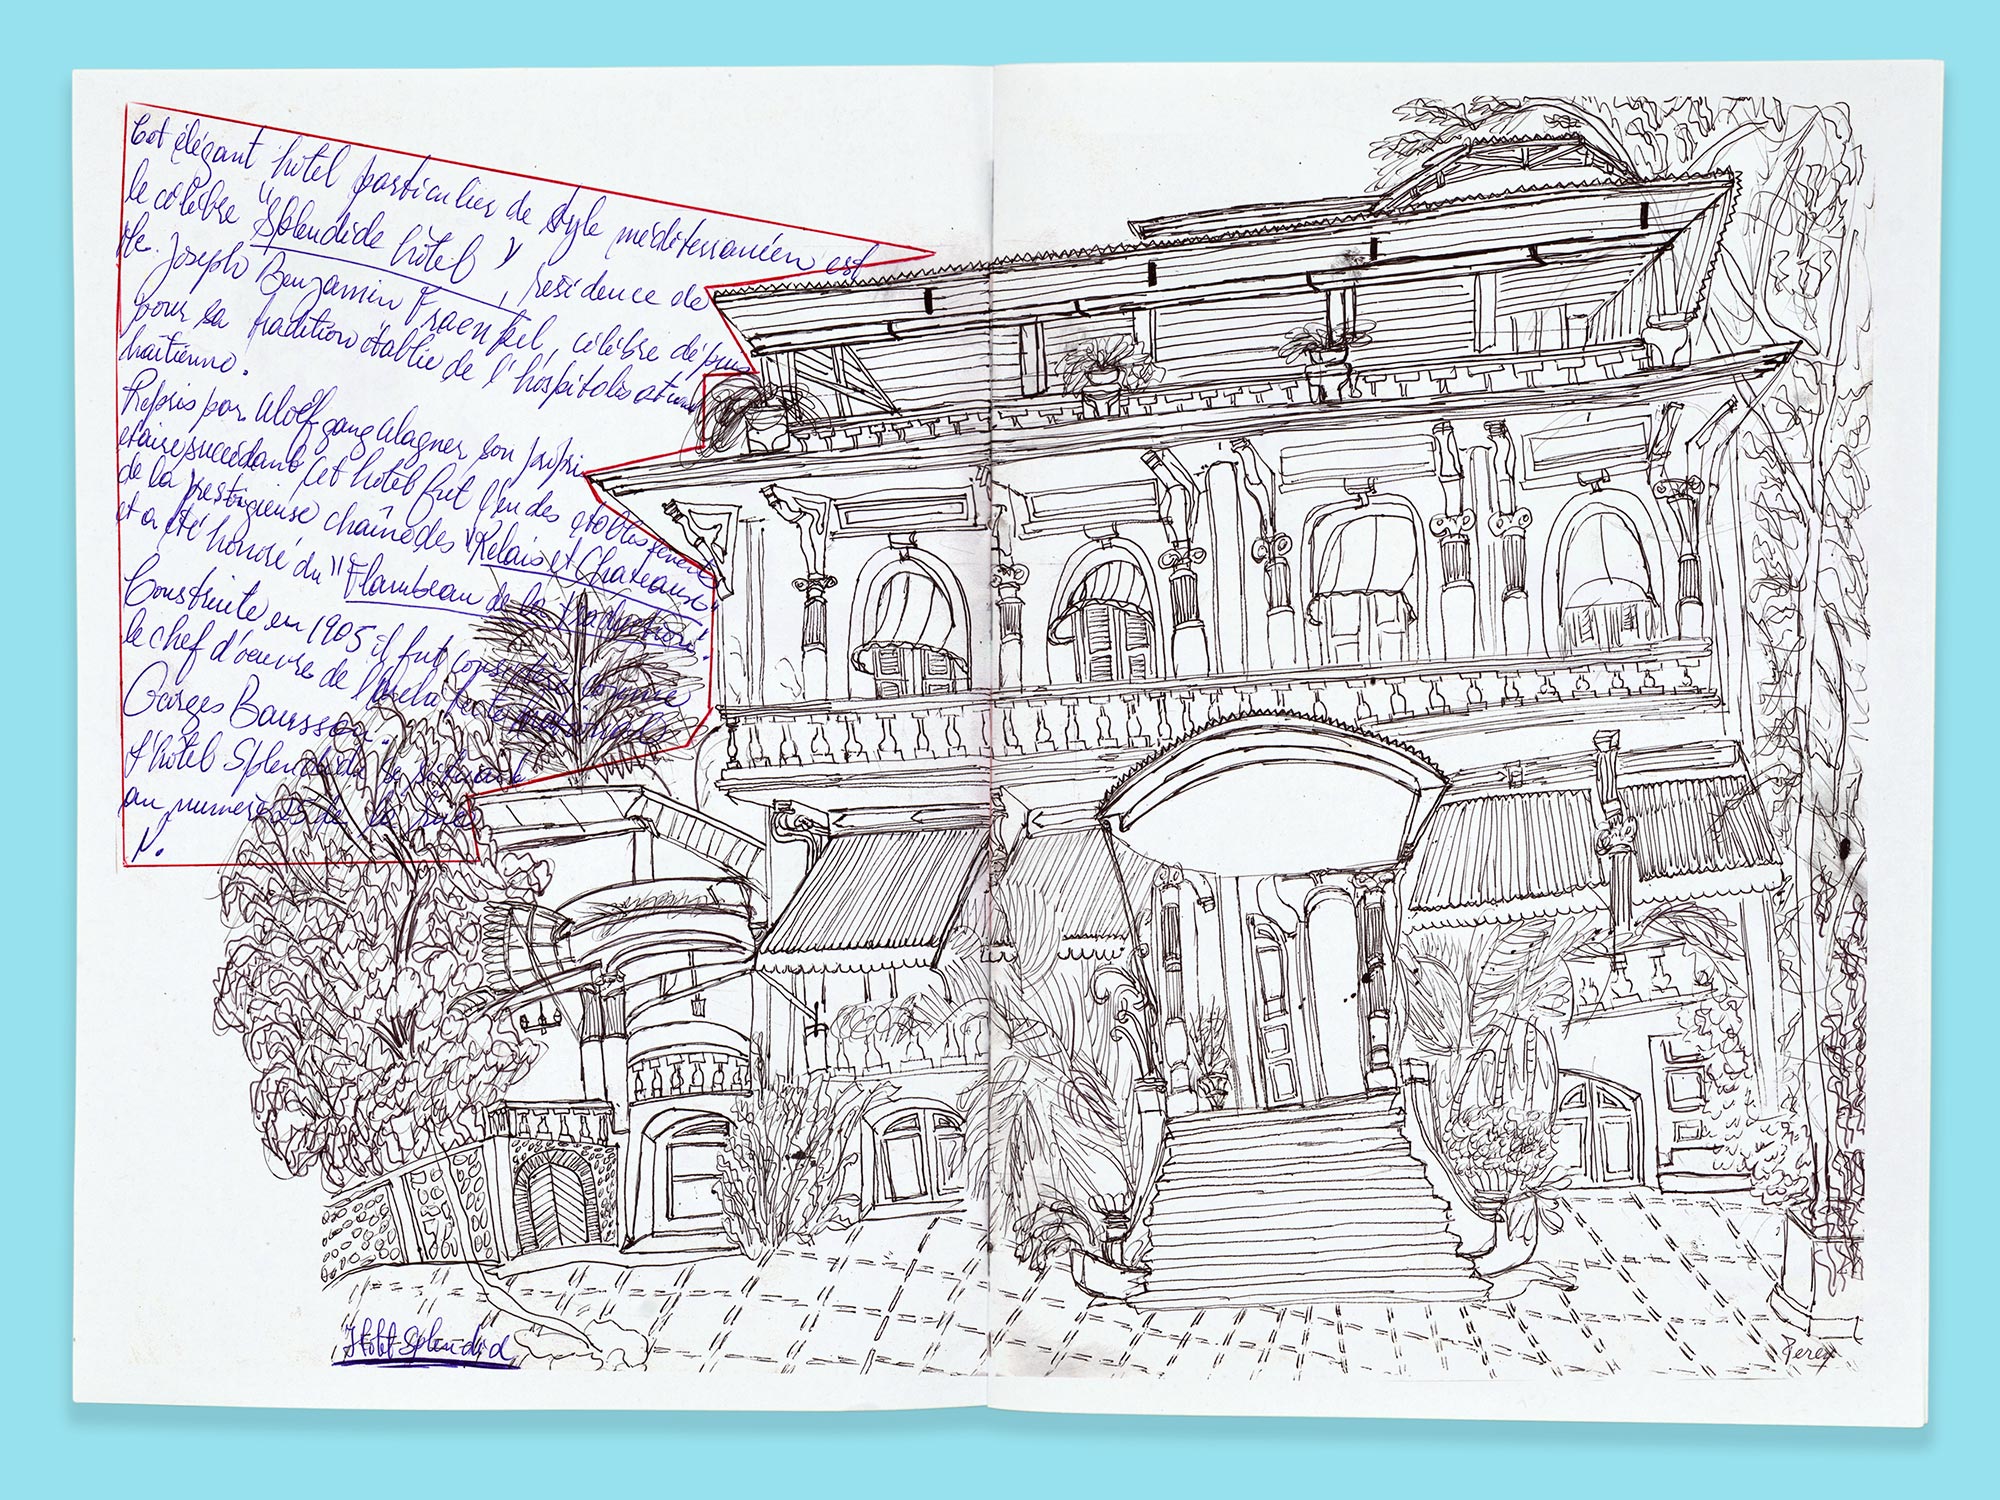 Cet élégant hôtel particulier de style méditerranéen est
le célèbre "Splendide hôtel", résidence de
Me. Joseph Benjamin Fraenkel, célèbre depuis
pour sa tradition établie de l'hospitalisation
haïtienne.
Repris par Wolfgang Wagner son propri
etaire succédant cet hotel fut l'un des etablissement
de la prestigieuse chaîne des "Relais et Chateaux"
et a été honoré du "Flambeau de la tradition".
Construite en 1905 il fut considéré comme
le chef d'oeuvre de l'architecte
Georges Baussan.
L'hôtel Splendide se situait
au numero 25 de la rue
N.
Hotel Splendid
Perez